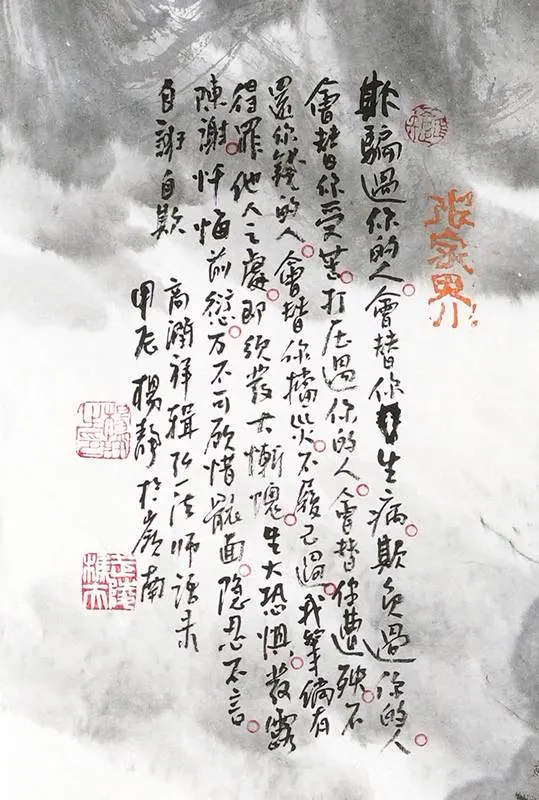 张家界
欺騙過你的人。會替你生病欺負過你的人。
會替你受苦。打压過你的人。會替你遭殃。不
還你錢的人。會替你擋災。不履己過。我等倘有
得罪他人之處。即须發大慚愧。生大恐惧。發露
陳謝忏悔前愆。万不可顧惜體面。隐忍不言。
自誑自欺
高潤祥輯弘一法師語录
甲辰楊靜於嶺南